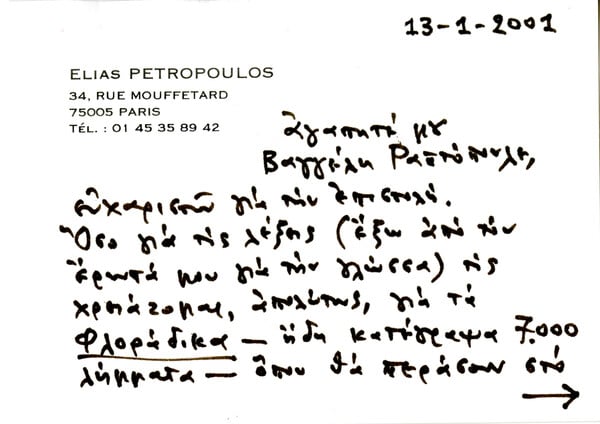 13-1-2001
ELIAS PETROPOULOS
34, RUE MOUFFETARD
75005 PARIS
TÉL. : 01 45 35 89 42
ἀγαπητέ μου
Βαγγέλη Ραπτόπουλε,
εὐχαριστῶ γιά τήν ἐπιστολή.
Ὅσο γιά τίς λέξεις (ἔξω ἀπό τόν
ἔρωτά μου γιά τήν γλῶσσα) τίς
χρειάζομαι, ἀπολύτως, γιά τά
Φλοράδικα — ἤδη κατέγραψα 7.000
λήμματα — ὅπου θά περάσουν στό
→